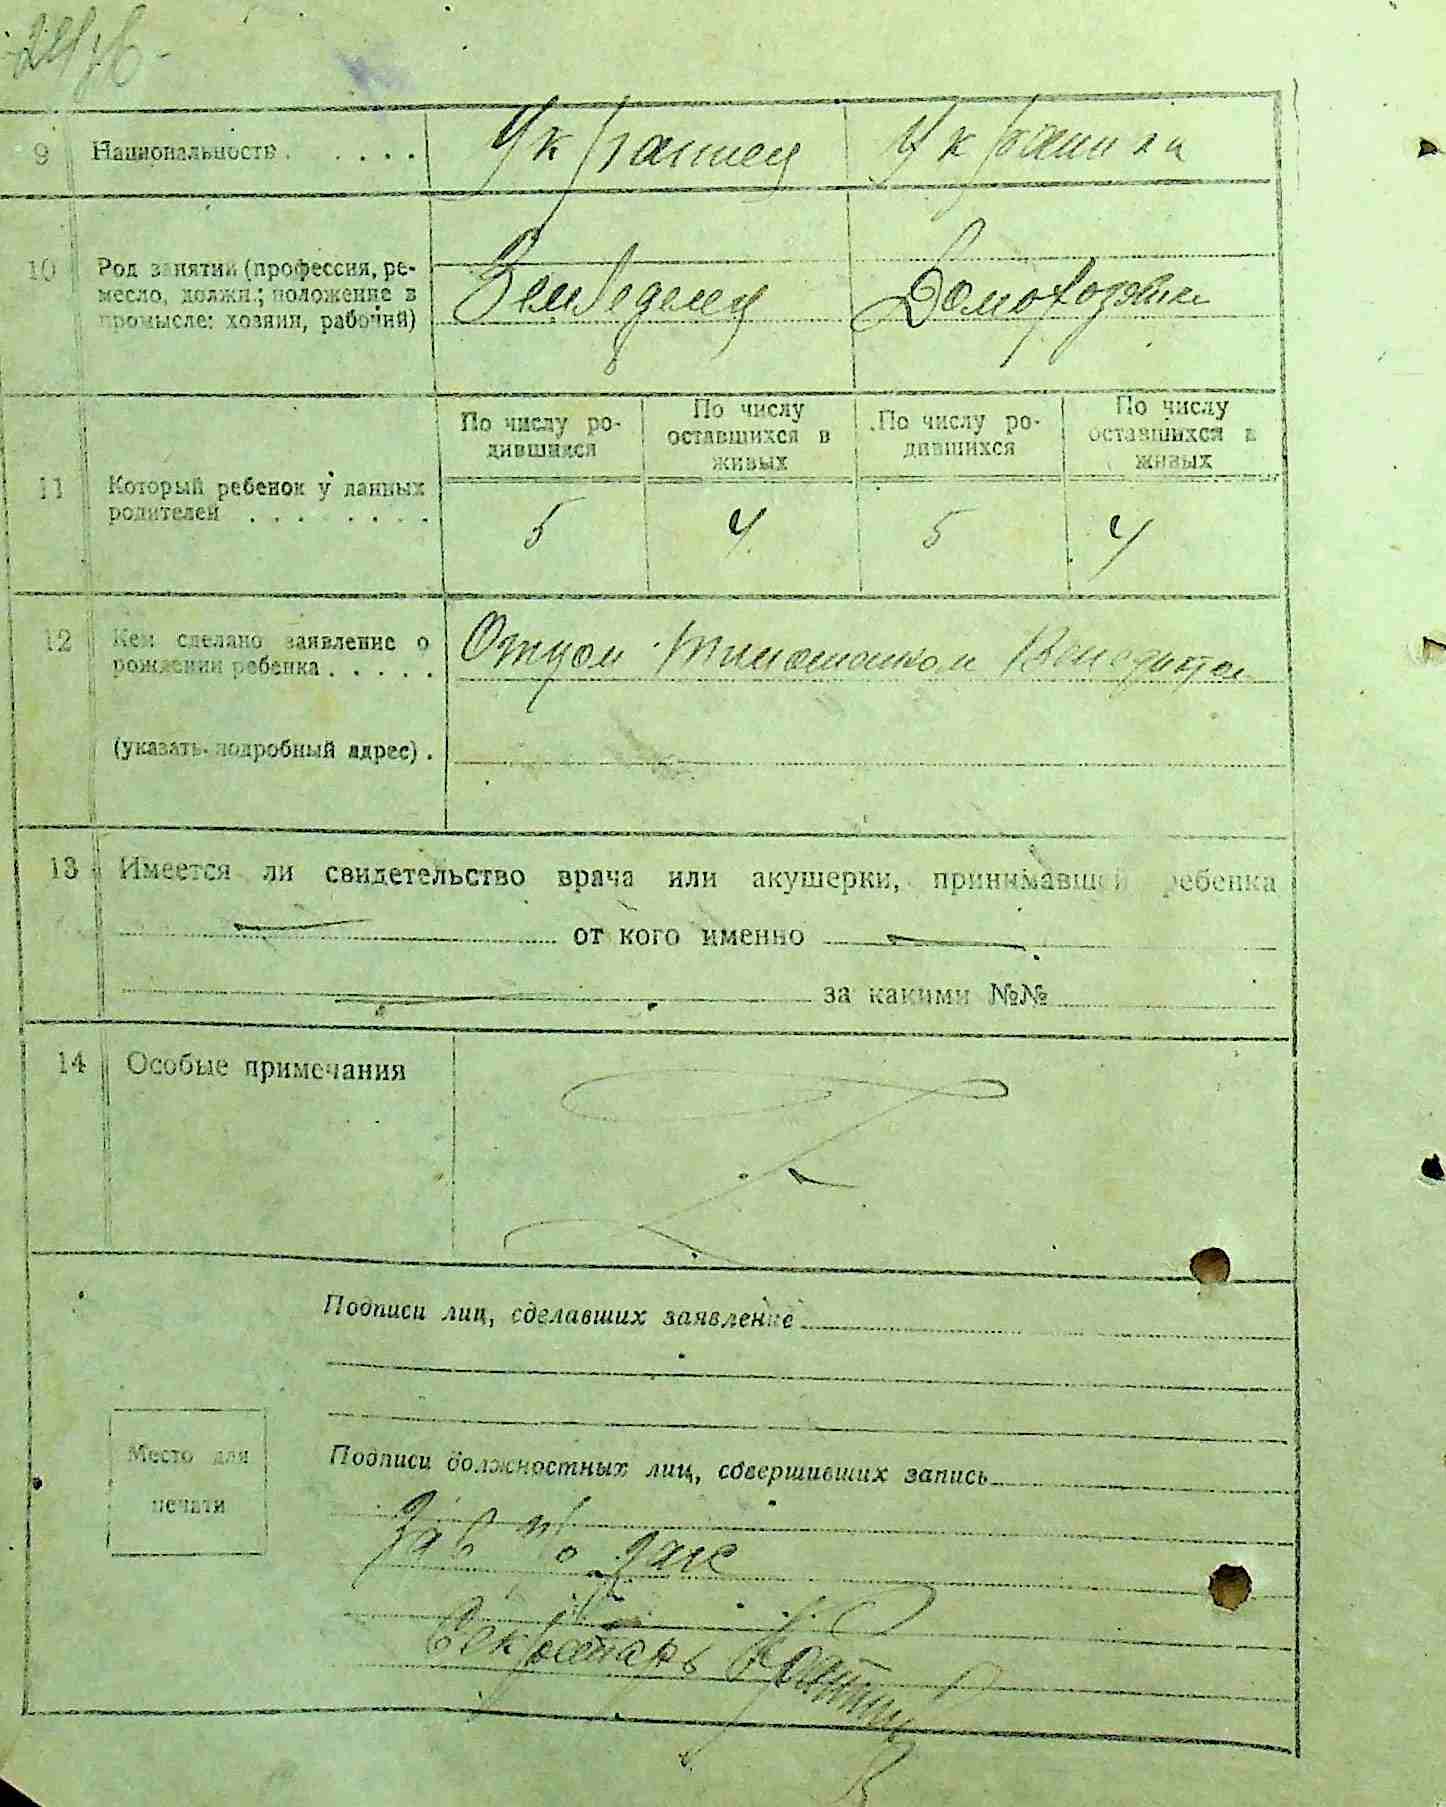 9 Национальность . . . . . Украинец Украинка
10 Род занятий (профессия, ре-
месло, должн.; положение в
промысле: хозяин, рабочий)
Земледелец Домохозяйка
По числу ро-
дившихся
По числу
оставшихся в
живых
По числу ро-
дившихся
По числу
оставшихся в
живых
11 Который ребенок у данных
родителей . . . . . . . .
5 4 5 4
12 Кем сделано заявление о
рождении ребенка . . . . .
Отцом Венедиктом
(указать подробный адрес) .
13 Имеется ли свидетельство врача или акушерки, принимавшей ребенка
от кого именно
за какими №№
14 Особые примечания
Подписи лиц, сделавших заявление
Место для
печати
Подписи должностных лиц, совершивших запись
Зав загс
Секретарь